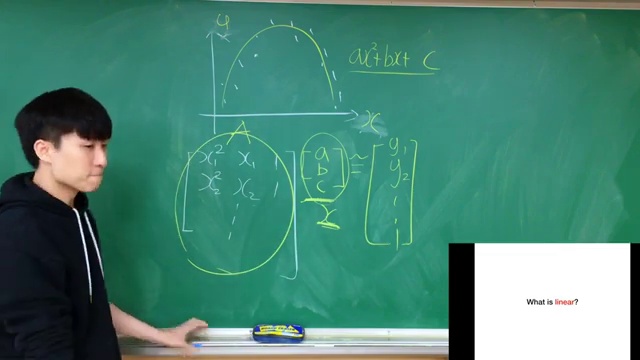 y
ax²+bx+ c
x
A
x₁² x₁ 1
x₂² x₂ 1
a
b
c
x
≈
y₁
y₂
What is linear?